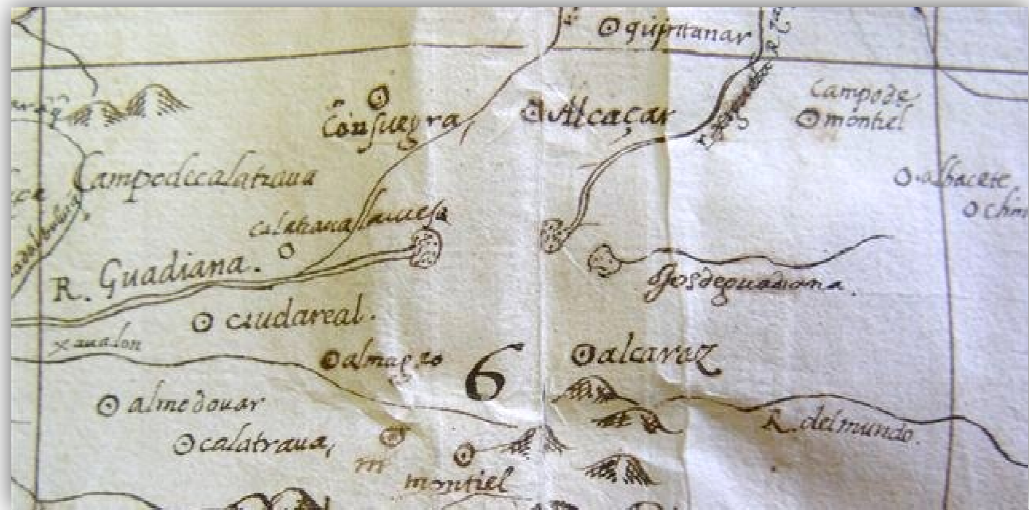 quintanar
Consuegra
Alcaçar
Campode
montiel
Campodecalatraua
albacete
chin
calatraua lauieja
R. Guadiana.
ojosdeguadiana.
ciudareal.
xaualon
almagro
6
alcaraz
almodouar
R. delmundo.
calatraua,
m
montiel